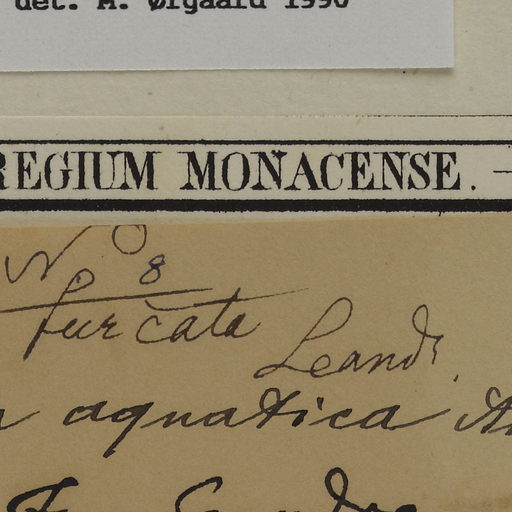 det. M. Ørgaard 1990
REGIUM MONACENSE. —
No 8
furcata
Leand.
aquatica